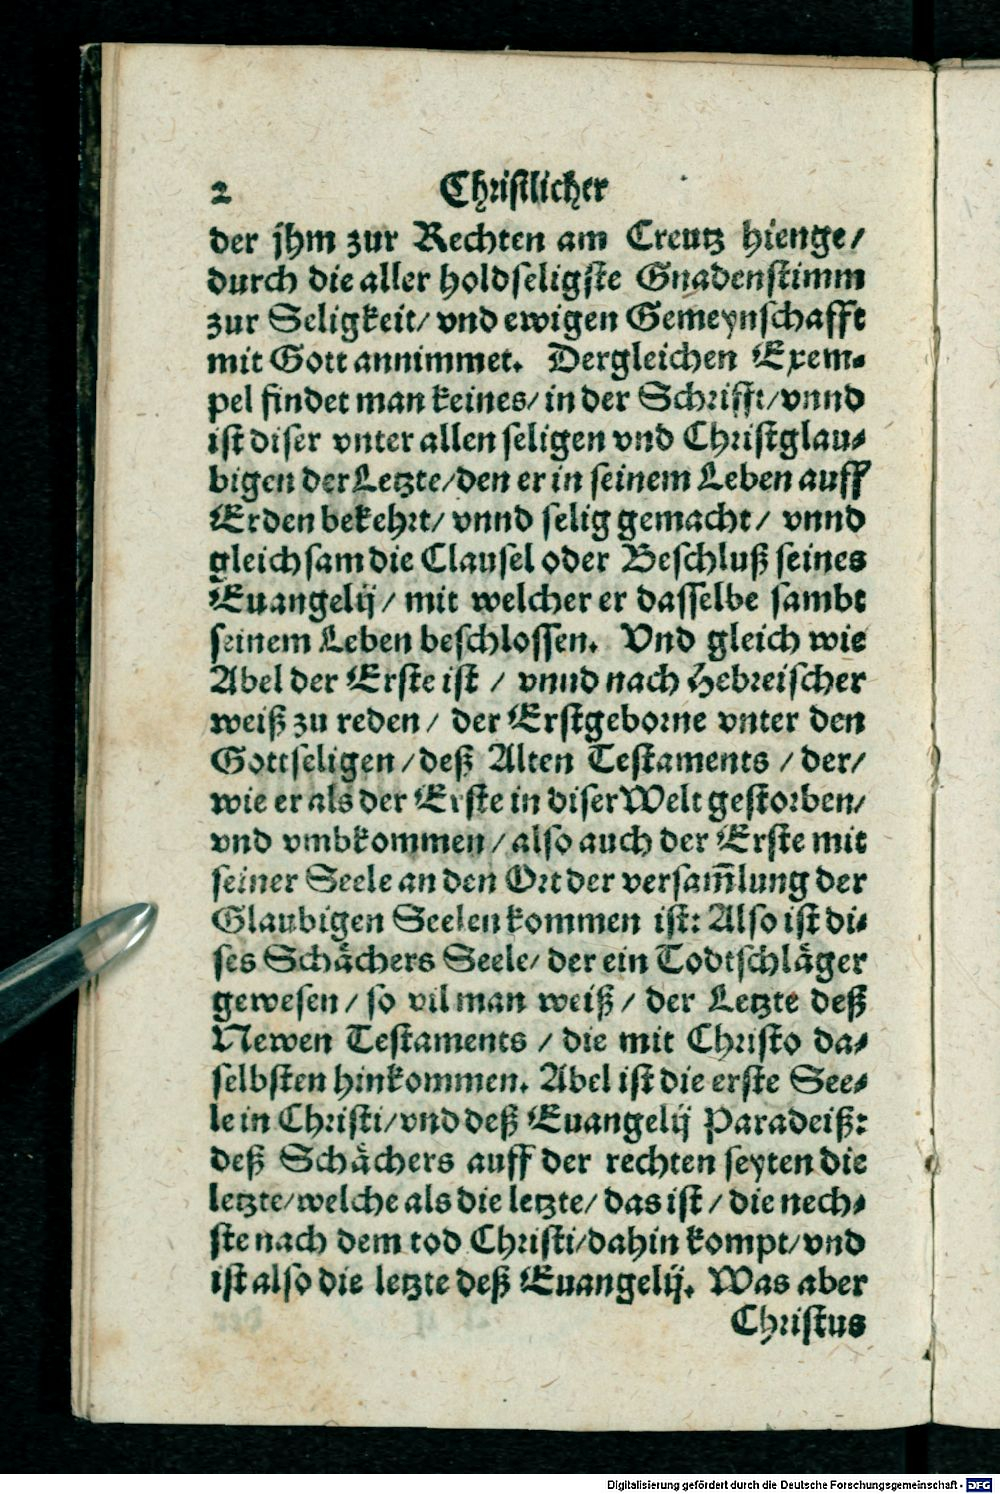 2 Christlicher
der jhm zur Rechten am Creutz hienge/
durch die aller holdseligste Gnadenstimm
zur Seligkeit/ vnd ewigen Gemeynschafft
mit Gott annimmet. Dergleichen Exem-
pel findet man keines/ in der Schrifft/ vnnd
ist diser vnter allen seligen vnd Christglau-
bigen der Letzte/ den er in seinem Leben auff
Erden bekehrt/ vnnd selig gemacht/ vnnd
gleichsam die Clausel oder Beschluß seines
Euangelij/ mit welcher er dasselbe sambt
seinem Leben beschlossen. Vnd gleich wie
Abel der Erste ist / vnnd nach Hebreischer
weiß zu reden/ der Erstgeborne vnter den
Gottseligen/ deß Alten Testaments / der/
wie er als der Erste in diser Welt gestorben/
vnd vmbkommen/ also auch der Erste mit
seiner Seele an den Ort der versam̄lung der
Glaubigen Seelen kommen ist: Also ist di-
ses Schächers Seele/ der ein Todtschläger
gewesen/ so vil man weiß/ der Letzte deß
Newen Testaments / die mit Christo da-
selbsten hinkommen. Abel ist die erste See-
le in Christi/ vnd deß Euangelij Paradeiß:
deß Schächers auff der rechten seyten die
letzte/ welche als die letzte/ das ist/ die nech-
ste nach dem tod Christi/ dahin kompt/ vnd
ist also die letzte deß Euangelij. Was aber
Christus
Digitalisierung gefördert durch die Deutsche Forschungsgemeinschaft - DFG